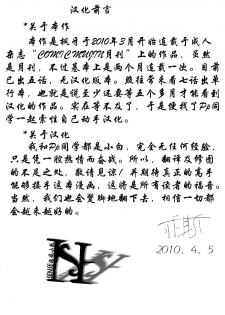 汉化前言
*关于本作
本作是枫牙于2010年3月开始连载于成人
杂志“COMIC MUJIN月刊”上的作品，虽然
是月刊，不过基本上是两个月连载一次。目前
已出五话，无汉化版本。照往常来看七话出单
行本，也就是说至少还要等五个多月才能看到
汉化的作品。实在等不及了，于是便找了Pp同
学一起索性自己动手汉化。
*关于汉化
我和Pp同学都是小白，完全无任何经验，
只是凭一腔热情而奋战。所以，翻译及修图
的不足之处，敬请见谅！并期待真正的高手
能够接手这本漫画，这将是所有读者的福音。
当然，我们也会蹩脚地翻下去，相信一切都
会越来越好的。
2010. 4. 5